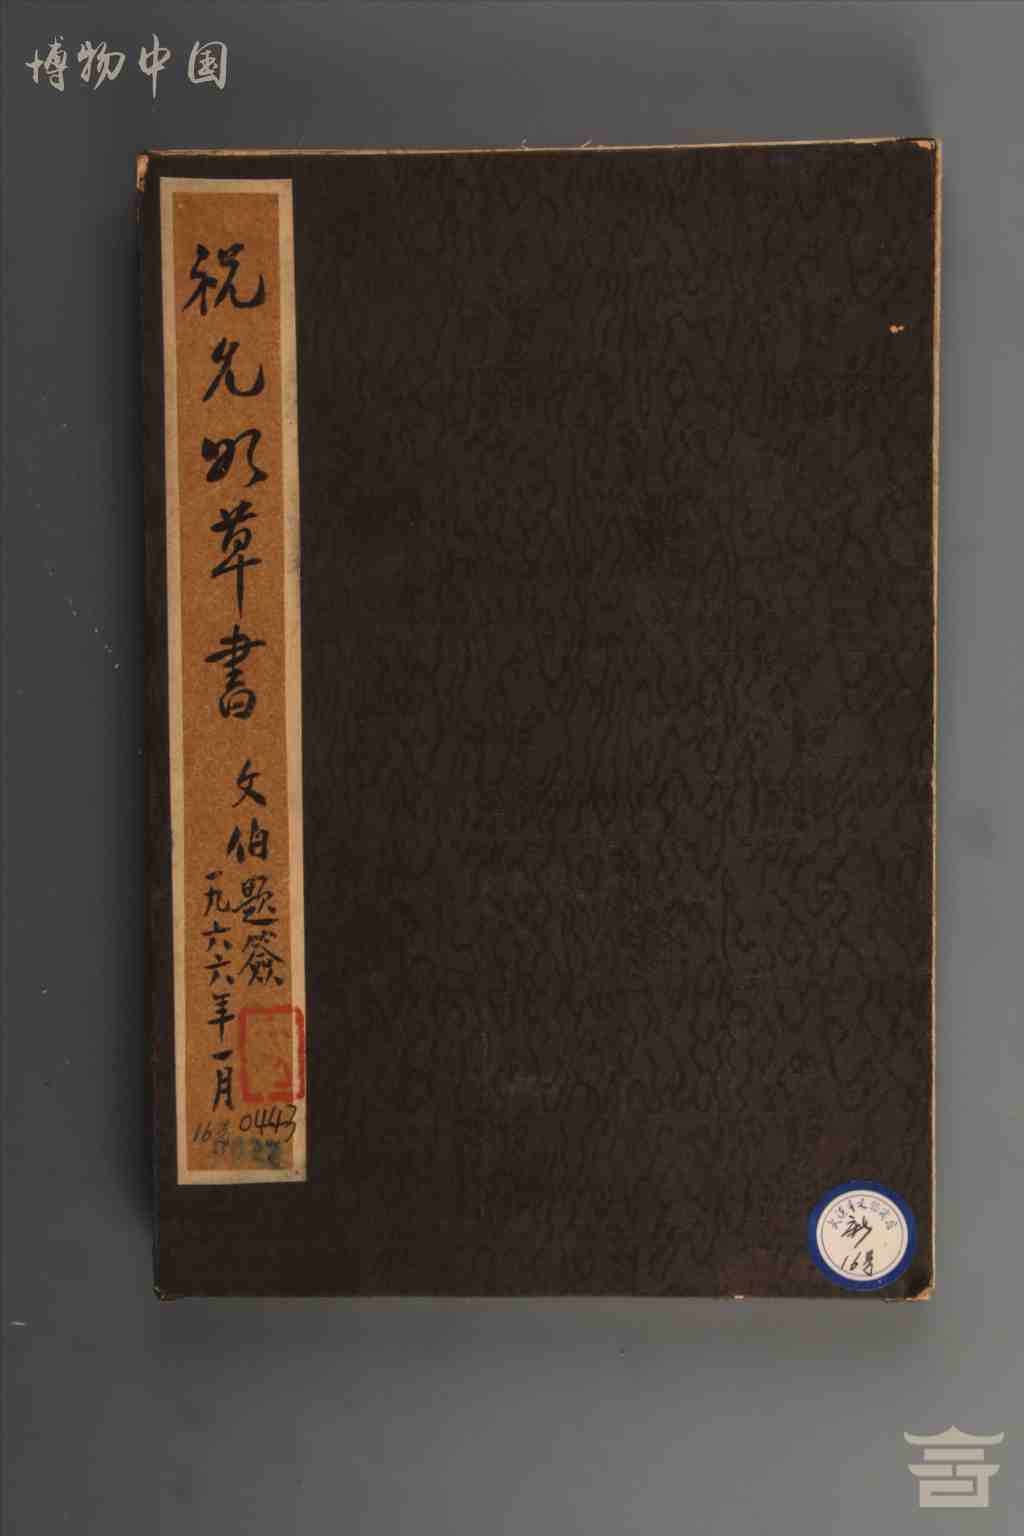 博物中国
祝允明草書
文伯題簽
一九六六年一月
16号 0443
新
16号